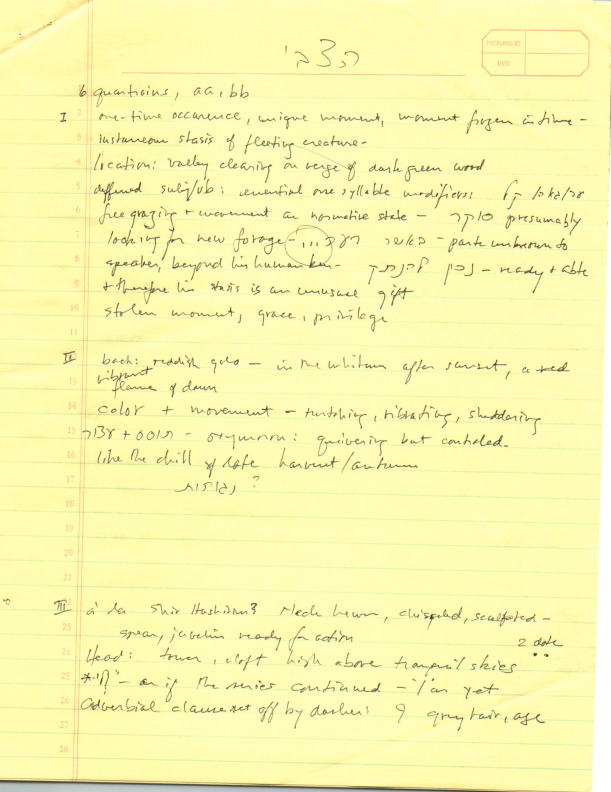 הצבי
PREPARED BY
DATE
6 quatrains, aa, bb
I one-time occurence, unique moment, moment frozen in time -
instaneous stasis of fleeting creature -
location: valley clearing on verge of dark green wood
deffered subj/vb: one syllable modifiers: קל
free grazing + movement as normative state - סוקר presumably
looking for new forage - ... באשר - parts unknown to
speaker, beyond his human ken - נכון להנתק - ready + able
+ therefore his stasis is an unusual gift
stolen moment, grace, privilege
II back: reddish gold - in the whitum after sunset, a red
vibrant
flame of dawn
color + movement - twitching, vibrating, shuddering
- oxymoron: quivering but controled -
like the chill of late harvest/autumn
?
III à la Shir Hashirim? Neck hewn, chiseled, sculpted -
spear, javelin ready for action
2 dots
Head: tower, aloft high above tranquil skies
- as if the series continued -
Adverbial clause set off by dashes: ? grey hair, age
2
3
4
5
6
7
8
9
10
11
13
14
15
16
17
18
19
20
21
23
24
25
26
27
28